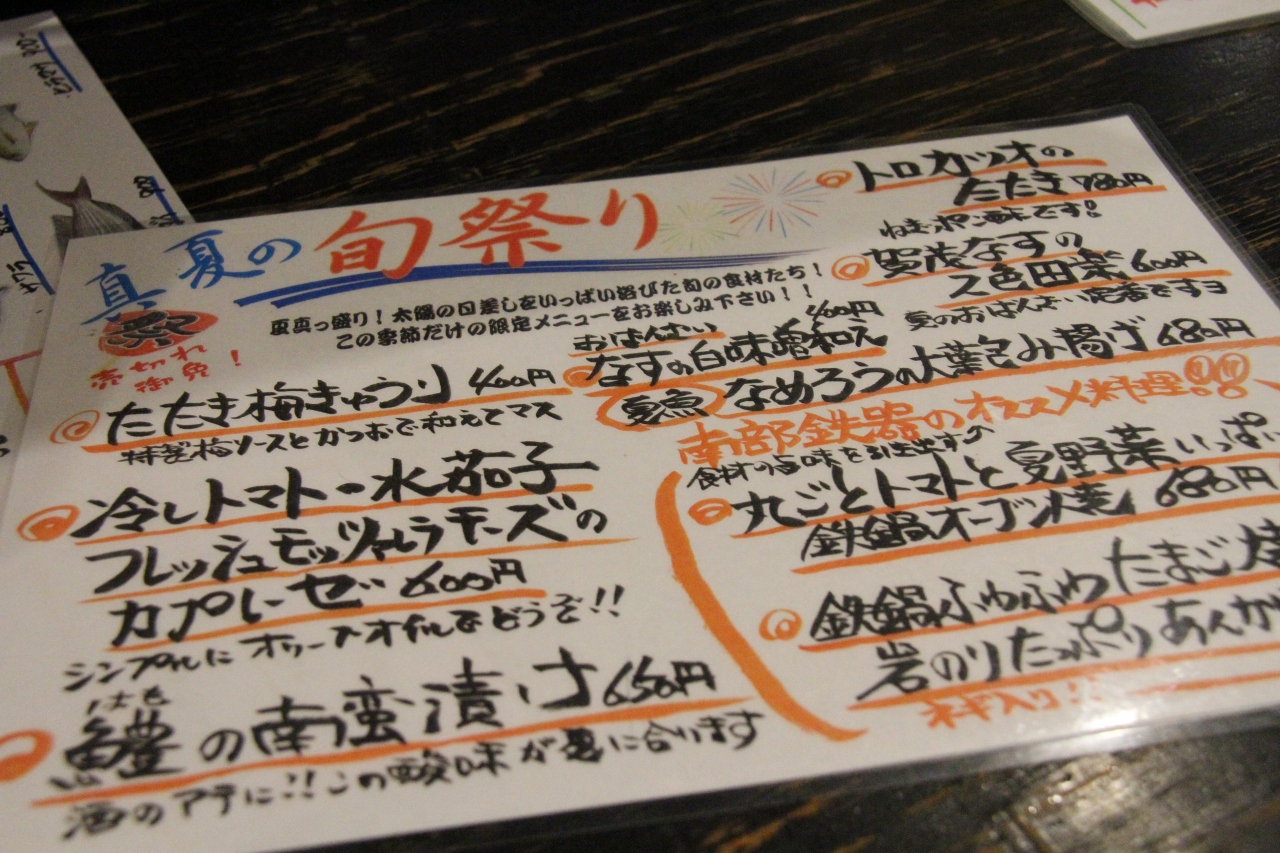 真夏の旬祭り
夏真っ盛り！太陽の日差しをいっぱい浴びた旬の食材たち！
この季節だけの限定メニューをお楽しみ下さい！！
祭
売切れ
御免！
たたき梅きゅうり 400円
特製梅ソースとかつおで和えてマス
冷しトマト・水茄子
フレッシュモッツァレラチーズの
カプレーゼ 600円
シンプルにオリーブオイルでどうぞ!!
はも
鱧の南蛮漬け 650円
酒のアテに!!この酸味が夏に合います
おばんざい
なすの白味噌和え 400円
夏魚 なめろうの大葉包み揚げ 680円
トロカツオの
たたき 780円
ねぎポン酢味です!
賀茂なすの
2色田楽 600円
夏のおばんざい定番ですヨ
南部鉄器のオススメ料理!!
食材の旨味を引き出す
丸ごとトマトと夏野菜いっぱい
鉄鍋オーブン焼 680円
鉄鍋ふわふわたまご焼
岩のりたっぷりあんか
ネギ入り!!